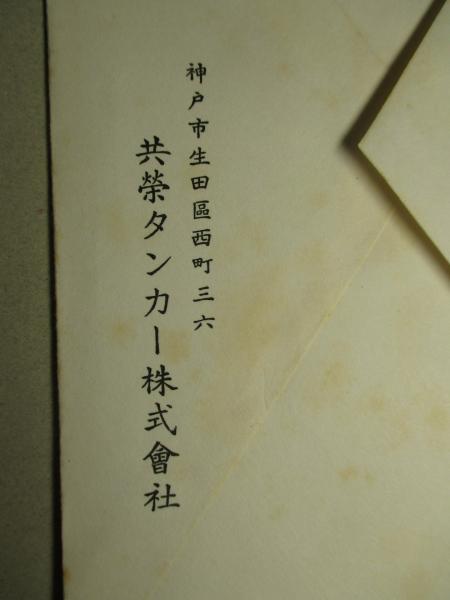 神戸市生田區西町三六
共榮タンカー株式會社